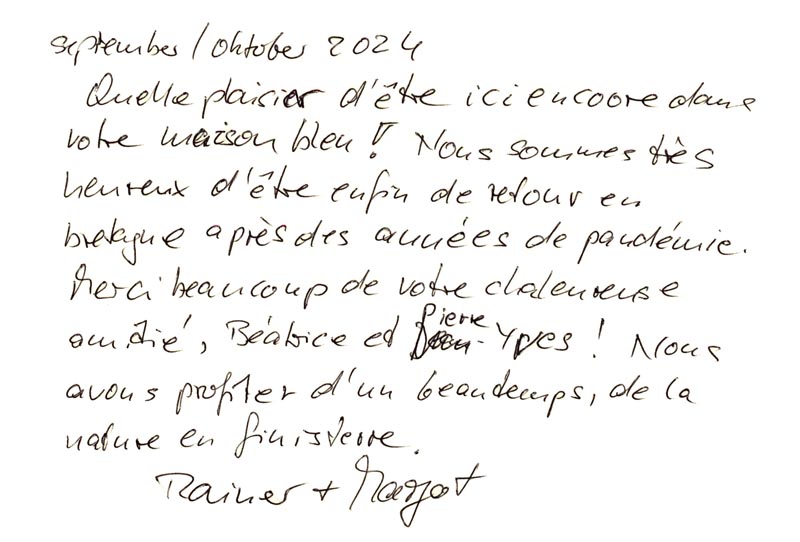 september / oktober 2024
Quelle plaisier d'être ici encoore dans
votre maison bleu ! Nous sommes très
heureux d'être enfin de retour en
bretagne après des années de pandémie.
Merci beaucoup de votre chaleureuse
amitié, Béatrice ed Pierre-Yves ! Nous
avons profiter d'un beau temps, de la
nature en finisterre.
Rainer + Margot